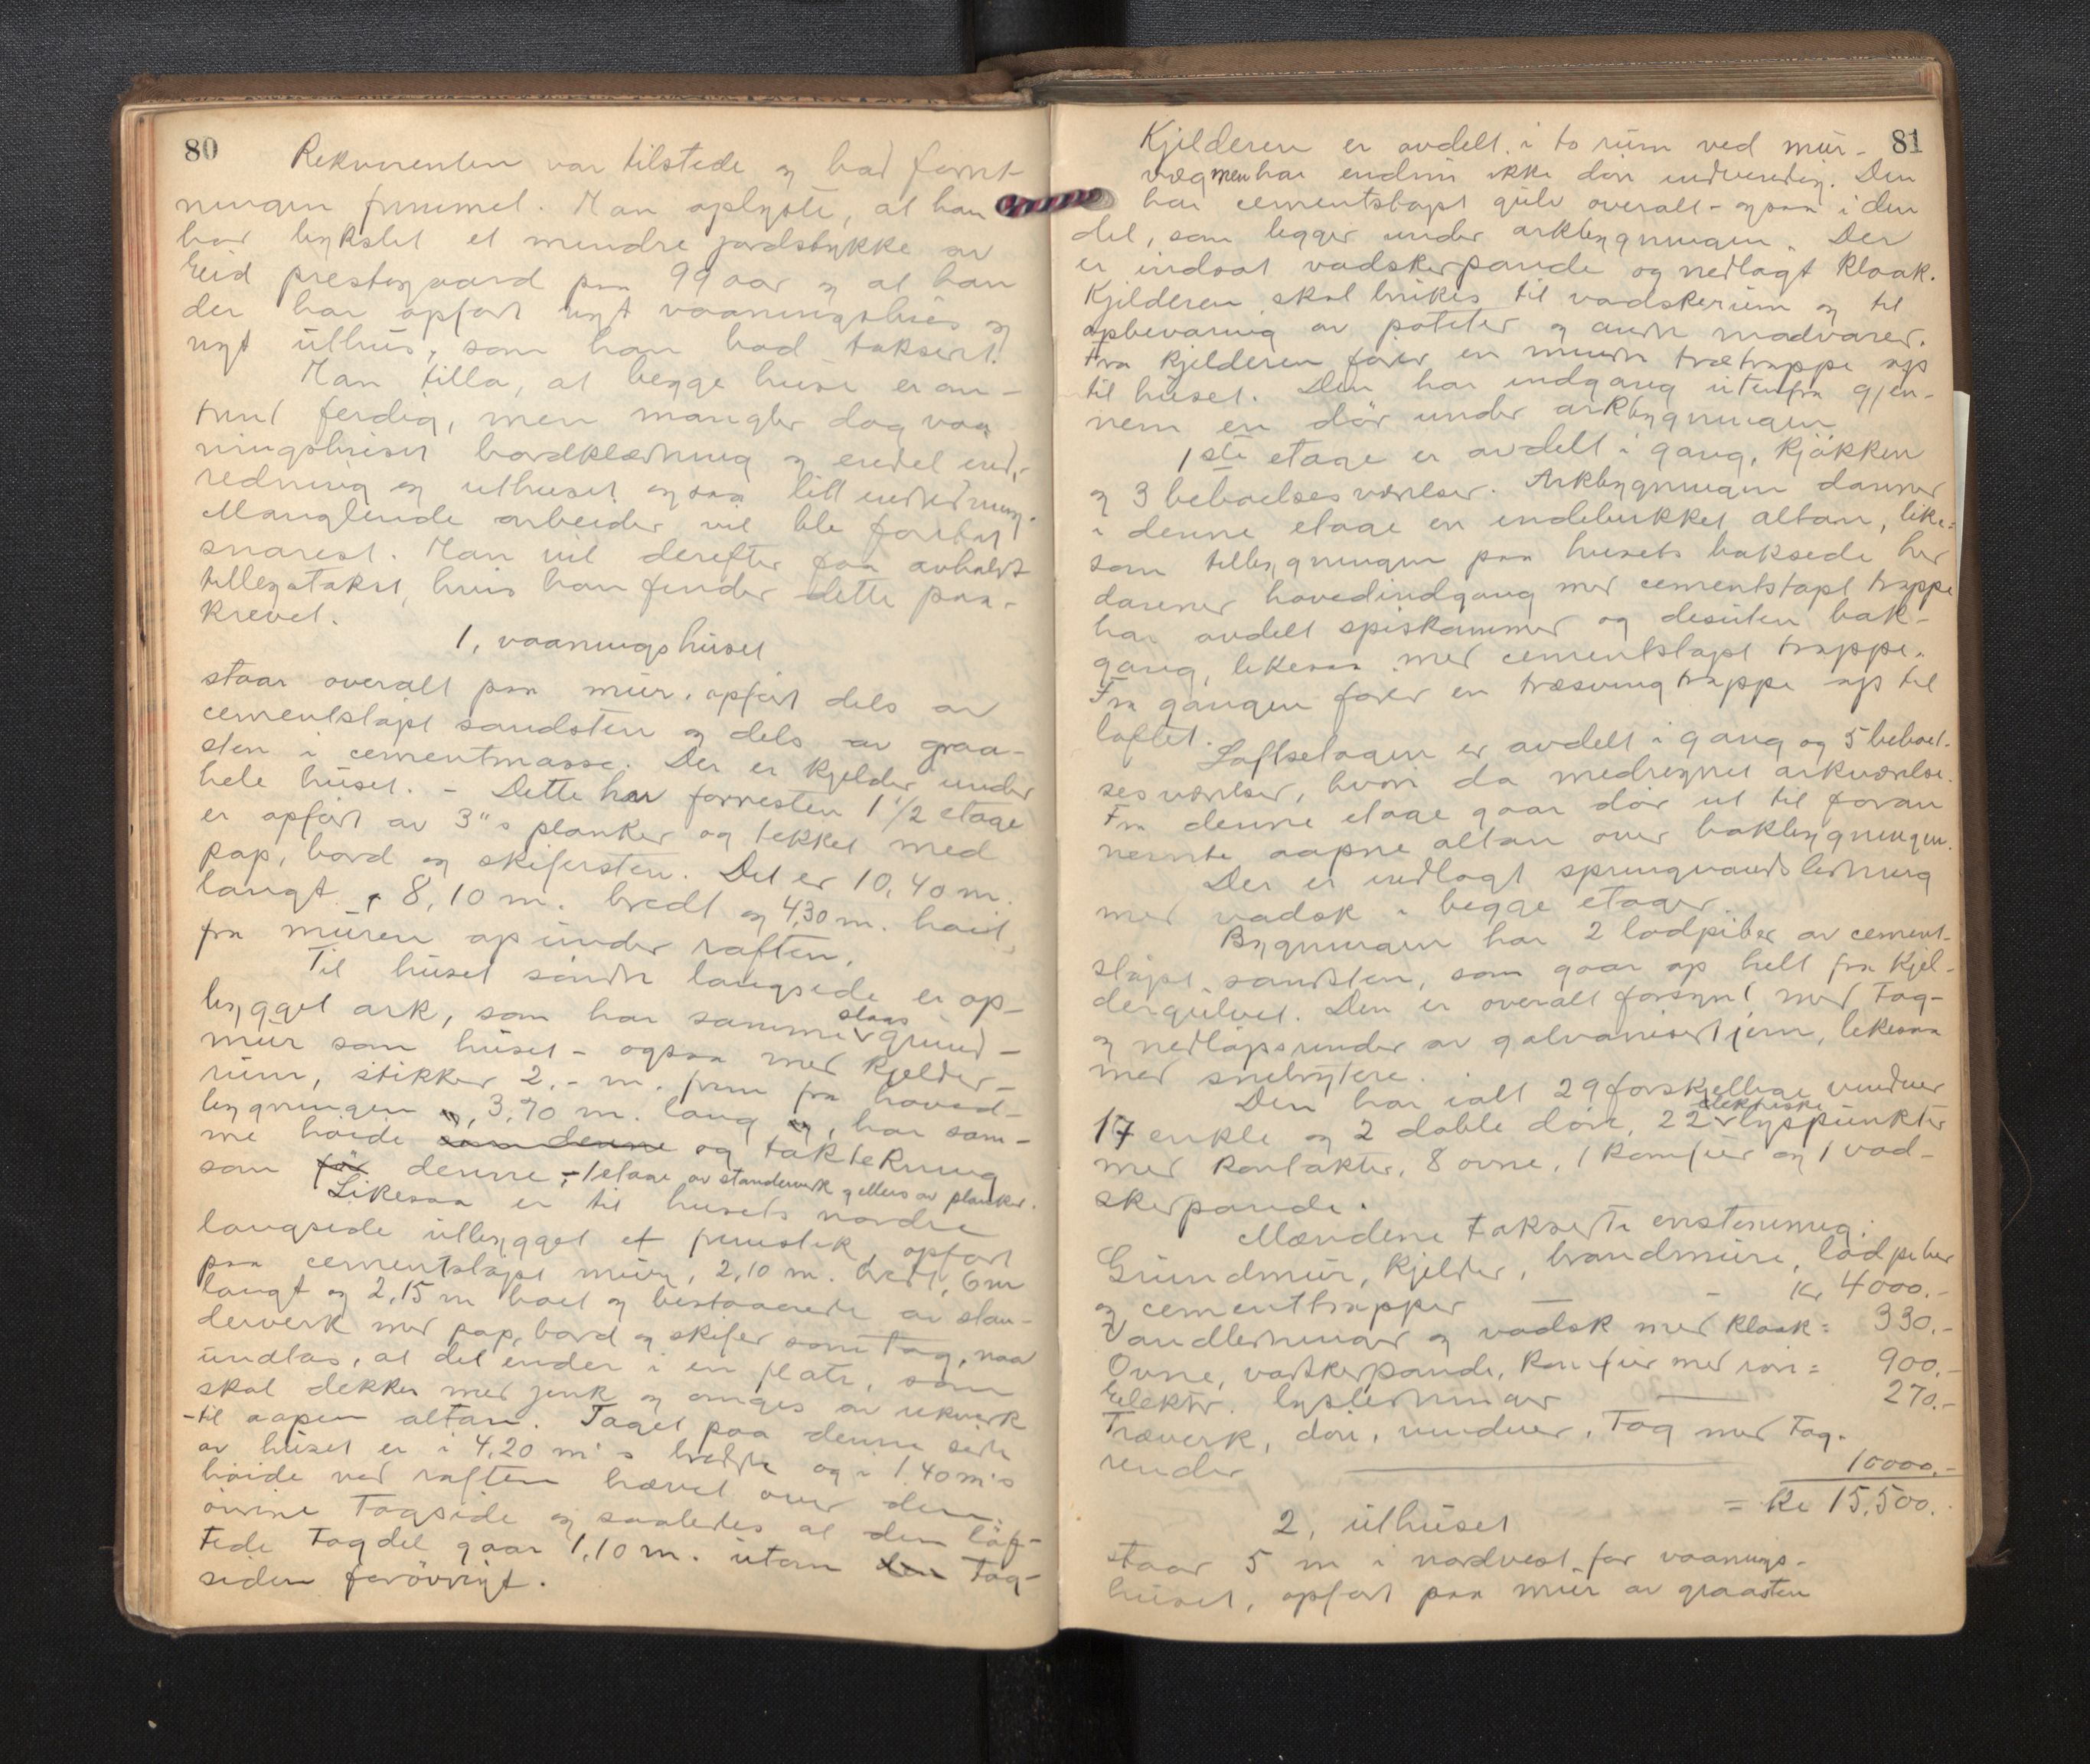 80
Rekvirenten var tilstede og bad forret-
ningen fremmet. Han oplyste, at han
har bykslet et mindre jordstykke av
Eid prestegaard paa 99 aar og at han
der har opført nyt vaaningshus og
nyt uthus, som han bad taksert.
Han tilla, at begge huse er om-
trent ferdig, men mangler dog vaa-
ningshuset bordklædning og endel ind-
redning og uthuset ogsaa litt indredning.
Manglende arbeider vil ble
snarest. Han vil derefter faa avholdt
tillegstakst, hvis han finder dette paa-
krevet.
1, vaaningshuset
staar overalt paa mur, opført dels av
cementstøpt sandsten og dels av graa-
sten i cementmasse. Der er kjelder under
hele huset. - Dette har forresten 1 1/2 etage
er opført av 3"s planker og tekket med
pap, bord og skifersten. Det er 10,40 m.
langt, 8,10 m. bredt og 4,30 m. høit,
fra muren op under raften.
Til huset søndre langside er op-
bygget ark, som har samme slags grund-
mur som huset - ogsaa med kjelder-
rum, stikker 2,- m. frem fra hoved-
bygningen, 3,70 m. lang, har sam-
me høide som denne og taktekning
som for denne, - 1 etage av standerverk og ellers av planker.
Likesaa er til husets nordre
langside utbygget et fremstik, opført
paa cementstøpt mur, 2,10 m. bredt, 6 m
langt og 2,15 m høit og bestaaende av stan-
derverk med pap, bord og skifer som tag, naar
undtas, at det ender i en flate, som
skal dekkes med zink og omgis av rekverk
- til aapen altan. Taget paa denne side
av huset er i 4,20 m's bredde og i 1,40 m's
høide ved raften hævet over den
øvrine tagside og saaledes at den løf-
tede tagdel gaar 1,10 m. utom den tag-
siden forøvrigt.
81
Kjelderen er avdelt i to rum ved mur-
væg men har endnu ikke dør indvendig. Den
har cementstøpt gulv overalt - ogsaa i den
del, som ligger under arkbygningen. Der
er indsat vaskerpande og nedlagt kloak.
Kjelderen skal brukes til vaskerum og til
opbevaring av poteter og andre madvarer.
Fra kjelderen fører en intern trætrappe op
til huset. Den har indgang utenfra gjen-
nem en dør under arkbygningen
1ste etage er avdelt i gang, kjøkken
og 3 beboelsesværelser. Arkbygningen danner
i denne etage en indebukket altan, like-
som tilbygningen paa husets bakside her
danner hovedindgang med cementstøpt trappe
har avdelt spiskammer og desuten bak-
gang, likesaa med cementstøpt trappe.
Fra gangen fører en træsvingtrappe op til
loftet.
Loftsetagen er avdelt i gang og 5 beboel-
sesværelser, hvori da medregnet arkværelse.
Fra denne etage gaar dør ut til foran
nevnte aapne altan over bakbygningen.
Der er indlagt springvandsledning
med vadsk i begge etager.
Bygningen har 2 lodpiber av cement-
støpt sandsten, som gaar op helt fra kjel-
dergulvet. Den er overalt forsynt med tag-
og nedløpsrender av galvanisert jern, likesaa
med snebrytere.
Den har ialt 29 forskjellige vinduer
17 enkle og 2 doble døre, 22 elektriske lyspunkter
med kontakter, 8 ovne, 1 komfur og 1 vad-
skerpande.
Mændene takserte enstemmig:
Grundmur, kjelder, brandmure, lodpiber
og cementtrapper — - Kr 4000.-
Vandledninger og vadsk med kloak = 330.-
Ovne, vaskerpande, komfur med rør = 900.-
Elektr. lysledninger — 270.-
Træverk, døre, vinduer, tag med tag-
render — 10000.-
= Kr 15,500.
2, uthuset
staar 5 m i nordvest for vaanings-
huset, opført paa mur av graasten